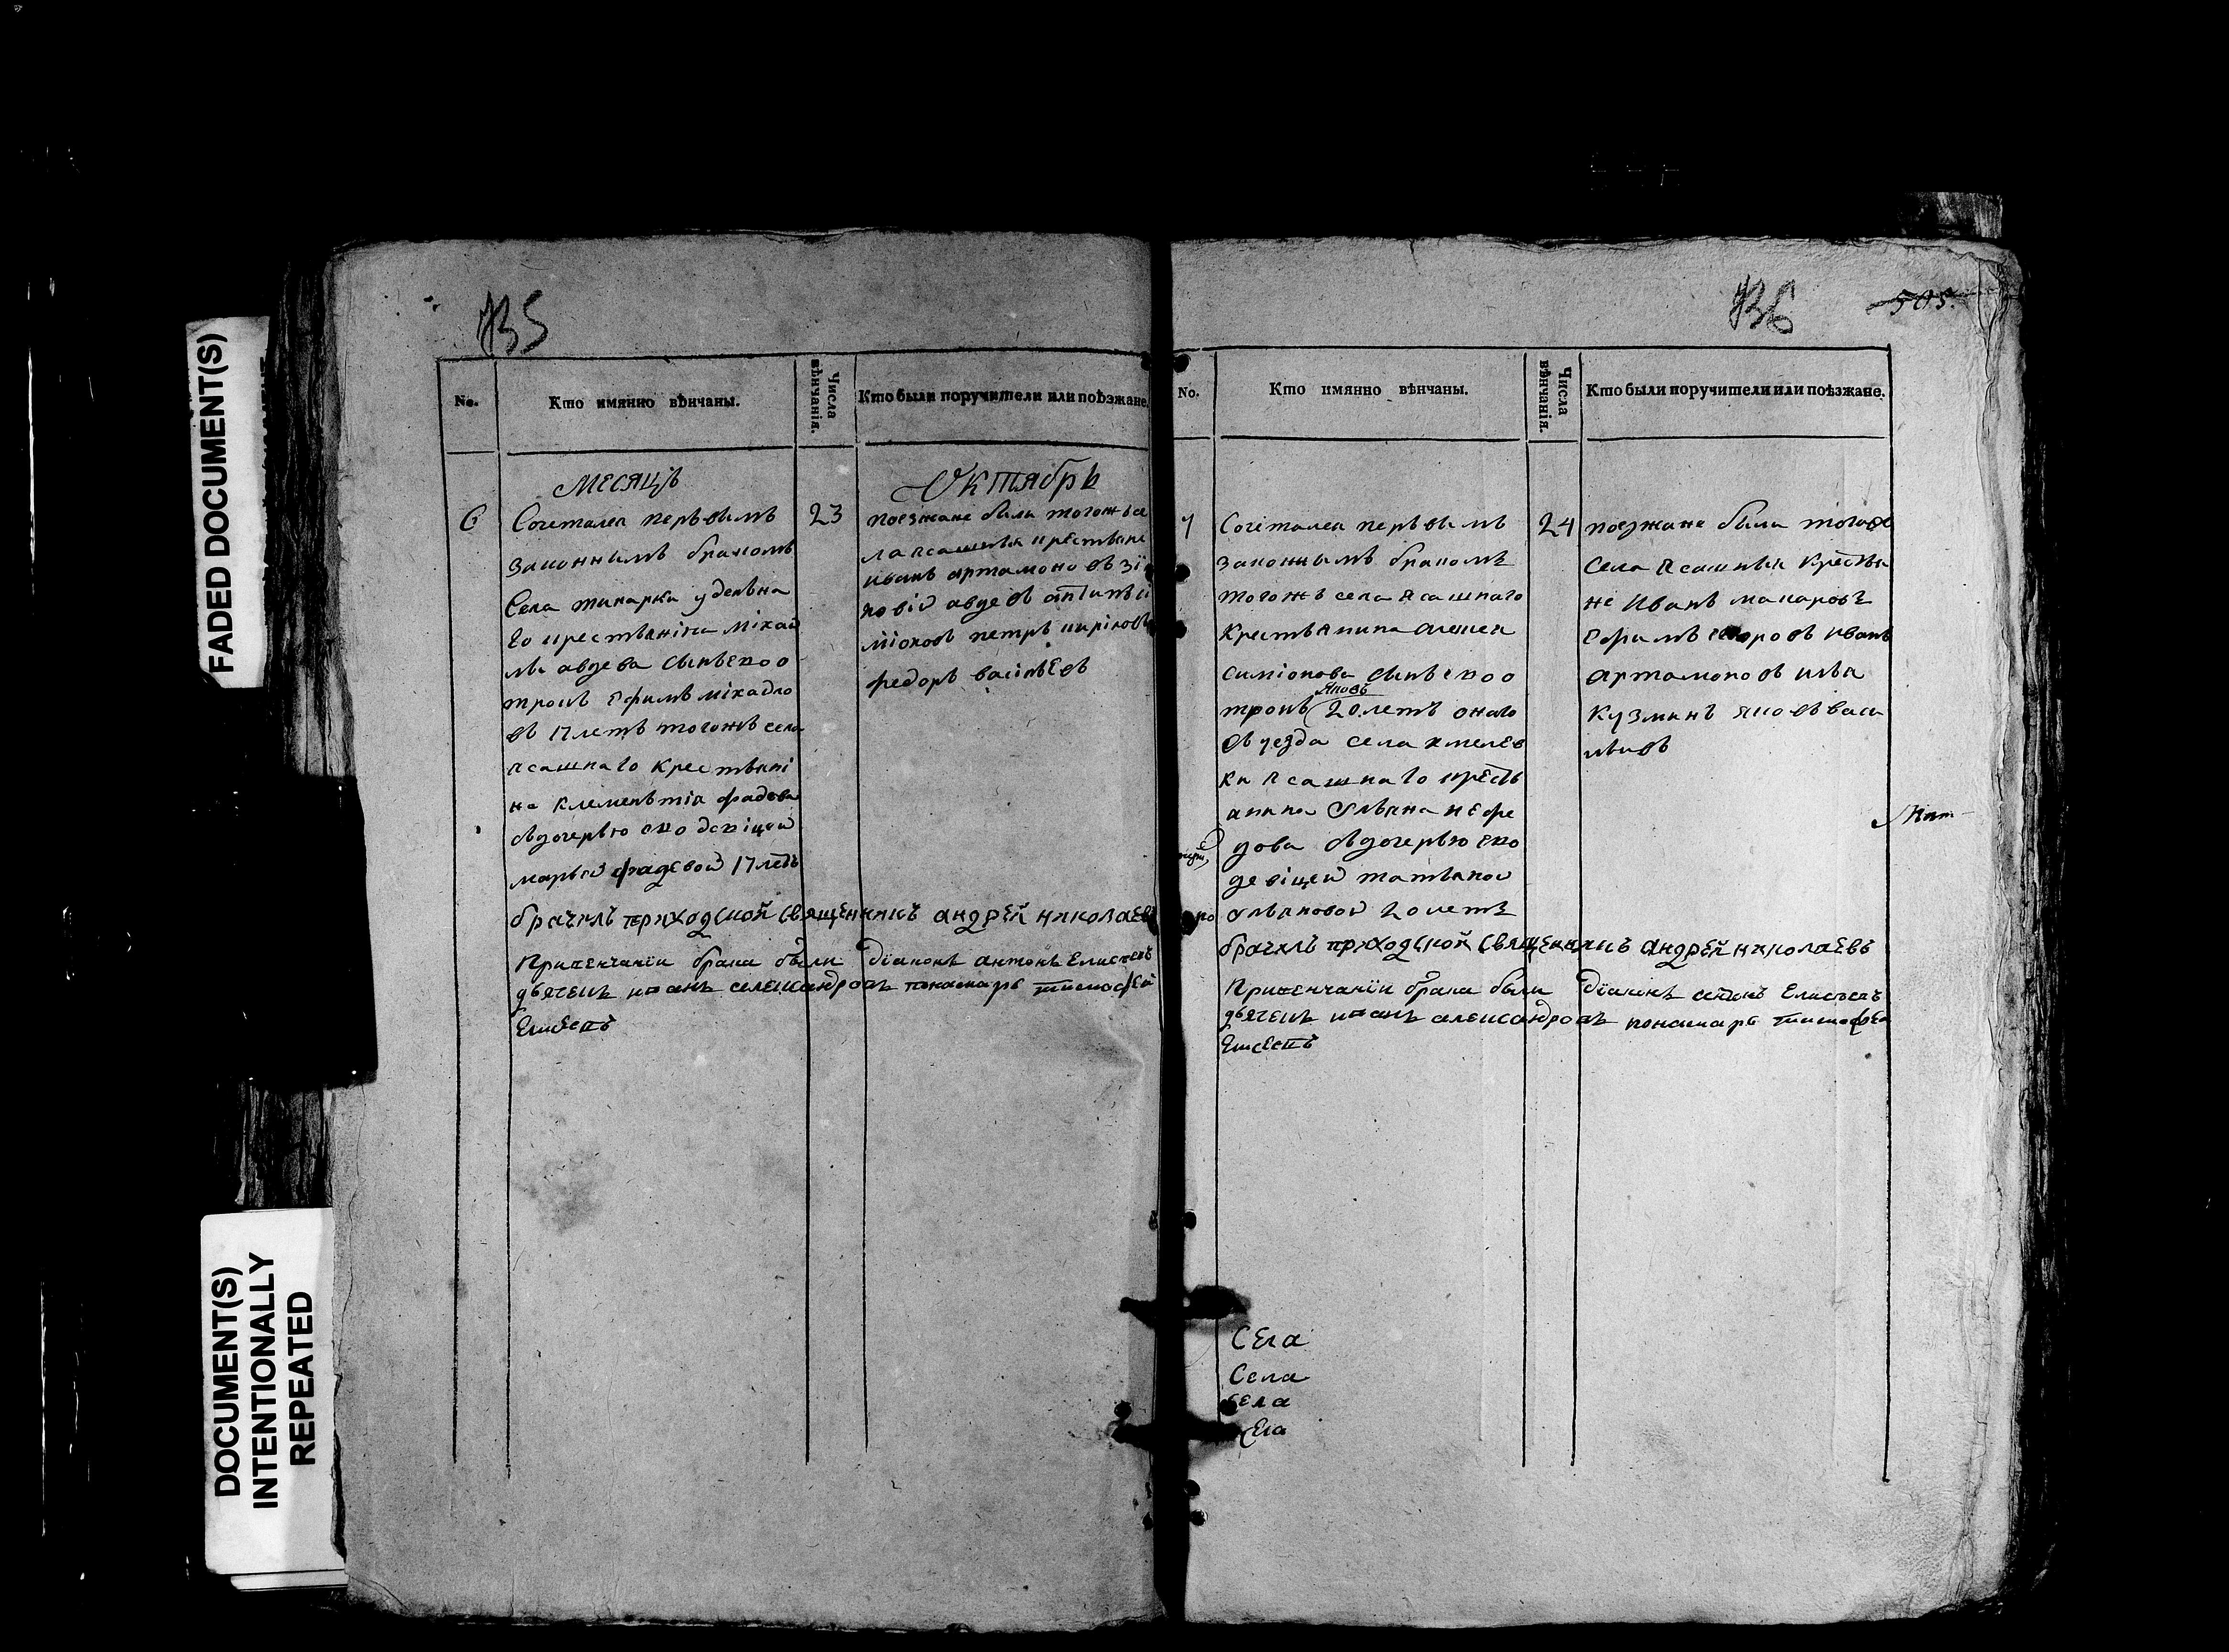 FADED DOCUMENT(S)
DOCUMENT(S)
INTENTIONALLY
REPEATED
735
No.
Кто имянно вѣнчаны.
Числа вѣнчанія.
Кто были поручители или поѣзжане.
Месяцъ
Октябрь
6
Сочетался перьвымъ
законнымъ бракомъ
села тинарки удельна
го крестьянина михай
лы авдева сынъ ево о
трокъ Ефимъ михайло
въ 17 летъ тогожъ села
ясашнаго крестьяни
на клеменьтia фадева
съ дочерью ево девiцей
марьей фадевой 17 летъ
23
поезжане были тогожъ се
ла ясашныя крестьяне
иванъ артамоновъ зi
новiй авдевъ антипъ си
мiоновъ петръ кириловъ
федоръ васiльевъ
брачилъ приходской священникъ андрей николаевъ
При венчанiи брака были дiаконъ антонъ Елисеевъ
дьячекъ иванъ александровъ понамарь тимофей
Елисеевъ
736
505.
No.
Кто имянно вѣнчаны.
Числа вѣнчанія.
Кто были поручители или поѣзжане.
7
Сочетался перьвымъ
законнымъ бракомъ
тогожъ села ясашнаго
крестьянина алексея
симiонова сынъ ево о
яковъ
трокъ 20 летъ онаго
съ уезда села хмелев
ки ясашнаго кресть
янина ульяна нефе
дова съ дочерью ево
девiцей татьяной
ульяновой 20 летъ
24
поезжане были тогоже
села ясашныя крестья
не иванъ макаровъ
Ефимъ иванъ
артамоновъ илья
кузминъ яковъ васи
льивъ
брачилъ приходской священникъ андрей николаевъ
При венчанiи брака были дiаконъ антонъ Елисеевъ
дьячекъ иванъ александровъ понамарь тимофей
Елисеевъ
Села
Села
Села
Села